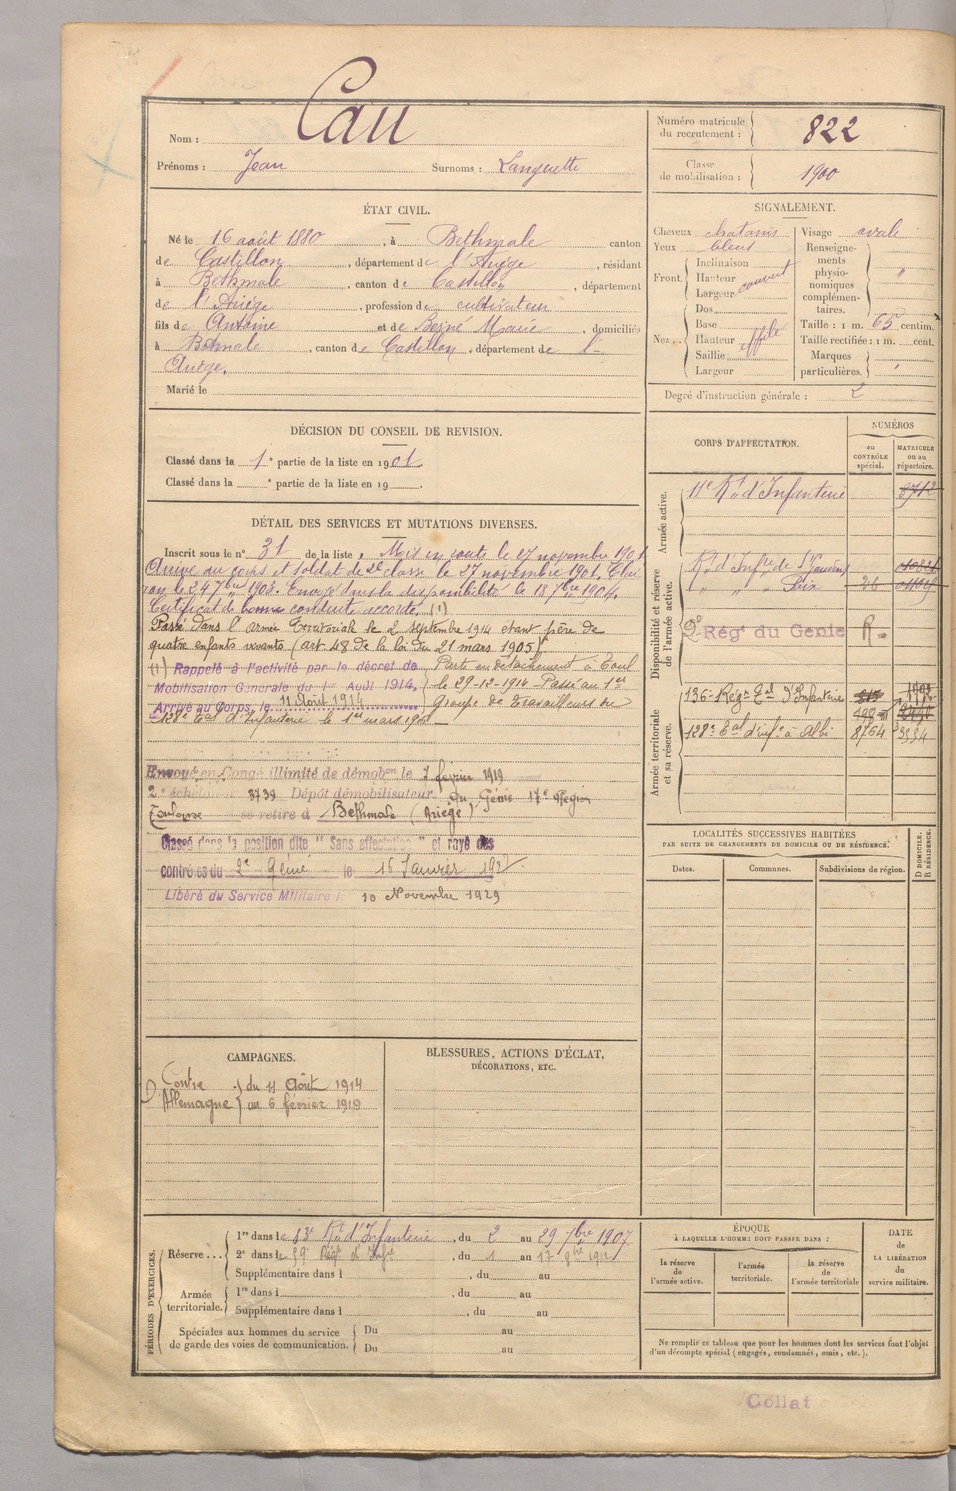 Nom : Cau
Prénoms : Jean Surnoms : Languette
Numéro matricule du recrutement : 822
Classe de mobilisation : 1900
ÉTAT CIVIL.
Né le 16 août 1880, à Bethmale canton
de Castillon, département de l'Ariège, résidant
à Bethmale, canton de Castillon, département
de l'Ariège, profession de cultivateur
fils de Antoine et de Marie, domiciliés
à canton de Castillon, département de l'-
Ariège.
Marié le
SIGNALEMENT.
Cheveux chatains Visage ovale
Yeux bleus
Front. Inclinaison Hauteur Largeur couvert
Nez.. Dos Base Hauteur Saillie Largeur effilé
Renseignements physionomiques complémentaires. "
Taille : 1 m. 65 centim.
Taille rectifiée : 1 m. cent.
Marques particulières.
Degré d'instruction générale : 2
DÉCISION DU CONSEIL DE REVISION.
Classé dans la 1e partie de la liste en 1901.
Classé dans la e partie de la liste en 19
CORPS D'AFFECTATION.
NUMÉROS
au CONTRÔLE spécial.
MATRICULE ou au répertoire.
Armée active.
11e Rt d'Infanterie 8712
Disponibilité et réserve de l'armée active.
Rt d'Infie de St Gaudens
" " " Foix
2e Rég' du Génie R.
Armée territoriale et sa réserve.
136e Régt Eal d'Infanterie
128e Eal d'inf. à Albi 8764
DÉTAIL DES SERVICES ET MUTATIONS DIVERSES.
Inscrit sous le n° 31 de la liste, Mis en route le 27 novembre 1901
Arrivé au corps et soldat de 2e classe le 27 novembre 1901.
le 24 7bre 1903. Envoyé dans la disponibilité le 18 7bre 1904.
Certificat de bonne conduite accordé. (1)
Passé dans l'armée Territoriale le 2 septembre 1914 étant père de
quatre enfants vivants (art 48 de la loi du 21 mars 1905)
(1) Rappelé à l'activité par le décret de
Mobilisation Générale du 1er Août 1914.
Arrivé au Corps, le 11 Août 1914
Parti en détachement à Toul
le 29-12-1914 - Passé au 1er
Groupe de Travailleurs du
128e Eal d'Infanterie le 1er mars
Envoyé en Congé illimité de démobon le 7 février 1919
2e échelon 3739 Dépôt démobilisateur du Génie 17e Région
Toulouse se retire à Bethmale (Ariège)
Classé dans la position dite "Sans affectation" et rayé des
contrôles du 2e Génie le 15 Janvier 1927
Libéré du Service Militaire le 10 Novembre 1929
LOCALITÉS SUCCESSIVES HABITÉES
PAR SUITE DE CHANGEMENTS DE DOMICILE OU DE RÉSIDENCE.
D DOMICILE. R RÉSIDENCE.
Dates. Communes. Subdivisions de région.
CAMPAGNES.
Contre Allemagne } du 11 Août 1914
au 6 février 1919
BLESSURES, ACTIONS D'ÉCLAT,
DÉCORATIONS, ETC.
PÉRIODES D'EXERCICES.
Réserve ...
1re dans le 83e Rt d'Infanterie, du 2 au 29 7bre 1907
2e dans le 59e Régt d'Infie, du 1 au 17 8bre 1912
Supplémentaire dans l , du au
Armée territoriale.
1re dans l , du au
Supplémentaire dans l , du au
Spéciales aux hommes du service
de garde des voies de communication.
Du au
Du au
ÉPOQUE
À LAQUELLE L'HOMME DOIT PASSER DANS :
la réserve de l'armée active.
l'armée territoriale.
la réserve de l'armée territoriale
DATE de LA LIBÉRATION du service militaire.
Ne remplir ce tableau que pour les hommes dont les services font l'objet
d'un décompte spécial (engagés, condamnés, omis, etc.).
Collat